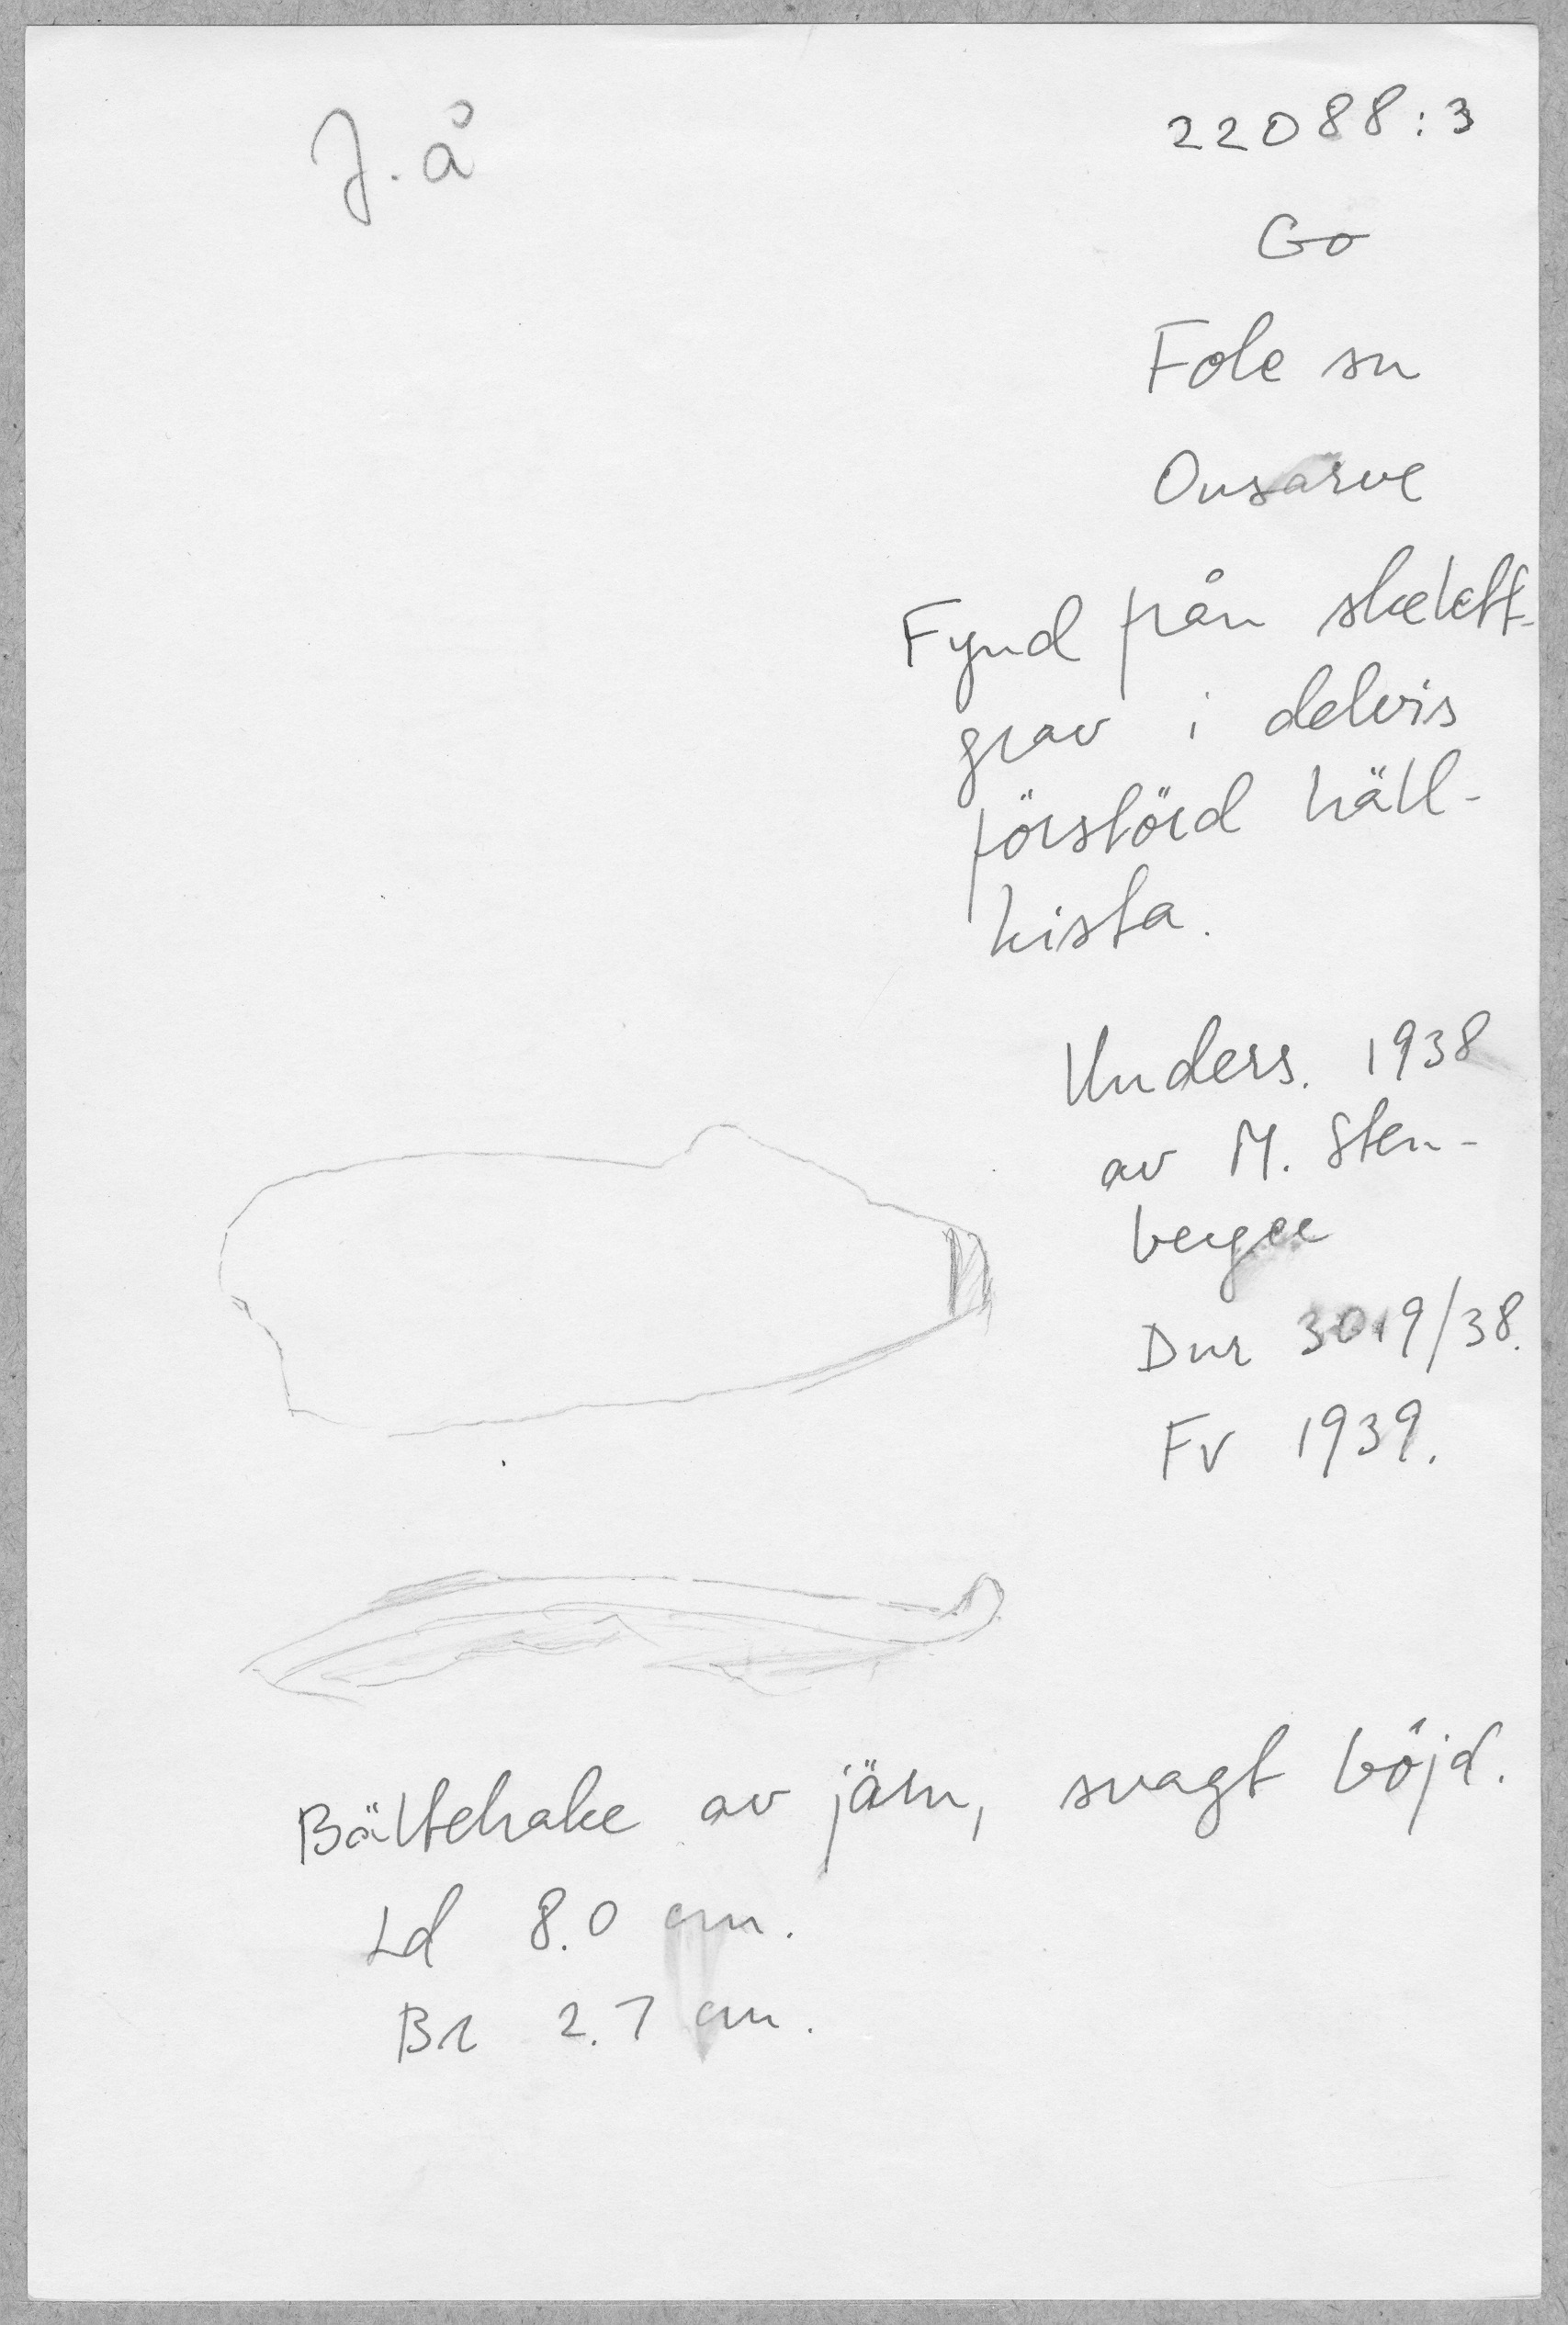 J. å
22088:3
Go
Fole sn
Ousarve
Fynd från skelett-
grav i delvis
förstörd häll-
kista.
Unders. 1938
av M. Sten-
berger
Dnr 3019/38.
Fv 1939.
Bältehake av järn, svagt böjd.
Ld 8.0 cm.
Br 2.7 cm.